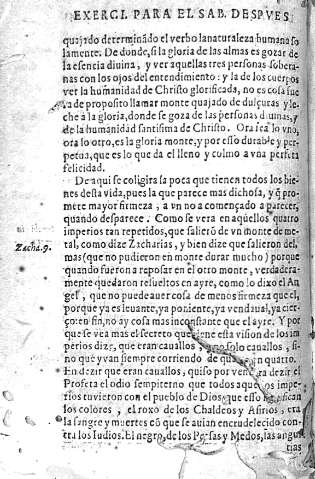 EXERCI. PARA EL SAB. DESPVES
quajado determinãdo el verbo la naturaleza humana so
lamente. De donde, si la gloria de las almas es gozar de
la esencia diuina, y ver aquellas tres personas sobera
nas con los ojos del entendimiento: y la de los cuerpos
ver la humanidad de Christo glorificada, no es cosa fue
ra de proposito llamar monte quajado de dulçuras y le
che à la gloria, donde se goza de las personas diuinas, y
de la humanidad santisima de Christo. Ora sea lo vno,
ora lo otro, es la gloria monte, y por esso durable y per
petua, que es lo que da el lleno y colmo a vna perfeta
felicidad.
De aqui se coligira la poca que tienen todos los bie
nes desta vida, pues la que parece mas dichosa, y q̃ pro
mete mayor firmeza, a vn no a començado a parecer,
quando desparece. Como se vera en aquellos quatro
imperios tan repetidos, que saliero de vn monte de me
Zacha. 9.
tal, como dize Zacharias, y bien dize que salieron del,
mas (que no pudieron en monte durar mucho) porque
quando fueron a reposar en el otro monte, verdadera
mente quedaron resueltos en ayre, como lo dixo el An
gel, que no puede auer cosa de menos firmeza que el,
porque ya es leuante, ya poniente, ya vendaual, ya cier
ço: en fin, no ay cosa mas inconstante que el ayre. Y por
que se vea mas el secreto que tiene esta vision de los im
perios dize, que eran cauallos, y no solo cauallos, si
no que yuan siempre corriendo de quatro en quatro.
En dezir que eran cauallos, quiso por ventura dezir el
Profeta el odio sempiterno que todos aquellos impe
rios tuvieron con el pueblo de Dios, que esso significan
los colores, el roxo de los Chaldeos y Asirios, era
la sangre y muertes cõ que se auian encrudelecido con
tra los Iudios. El negro, de los Persas y Medos, las angus
tias